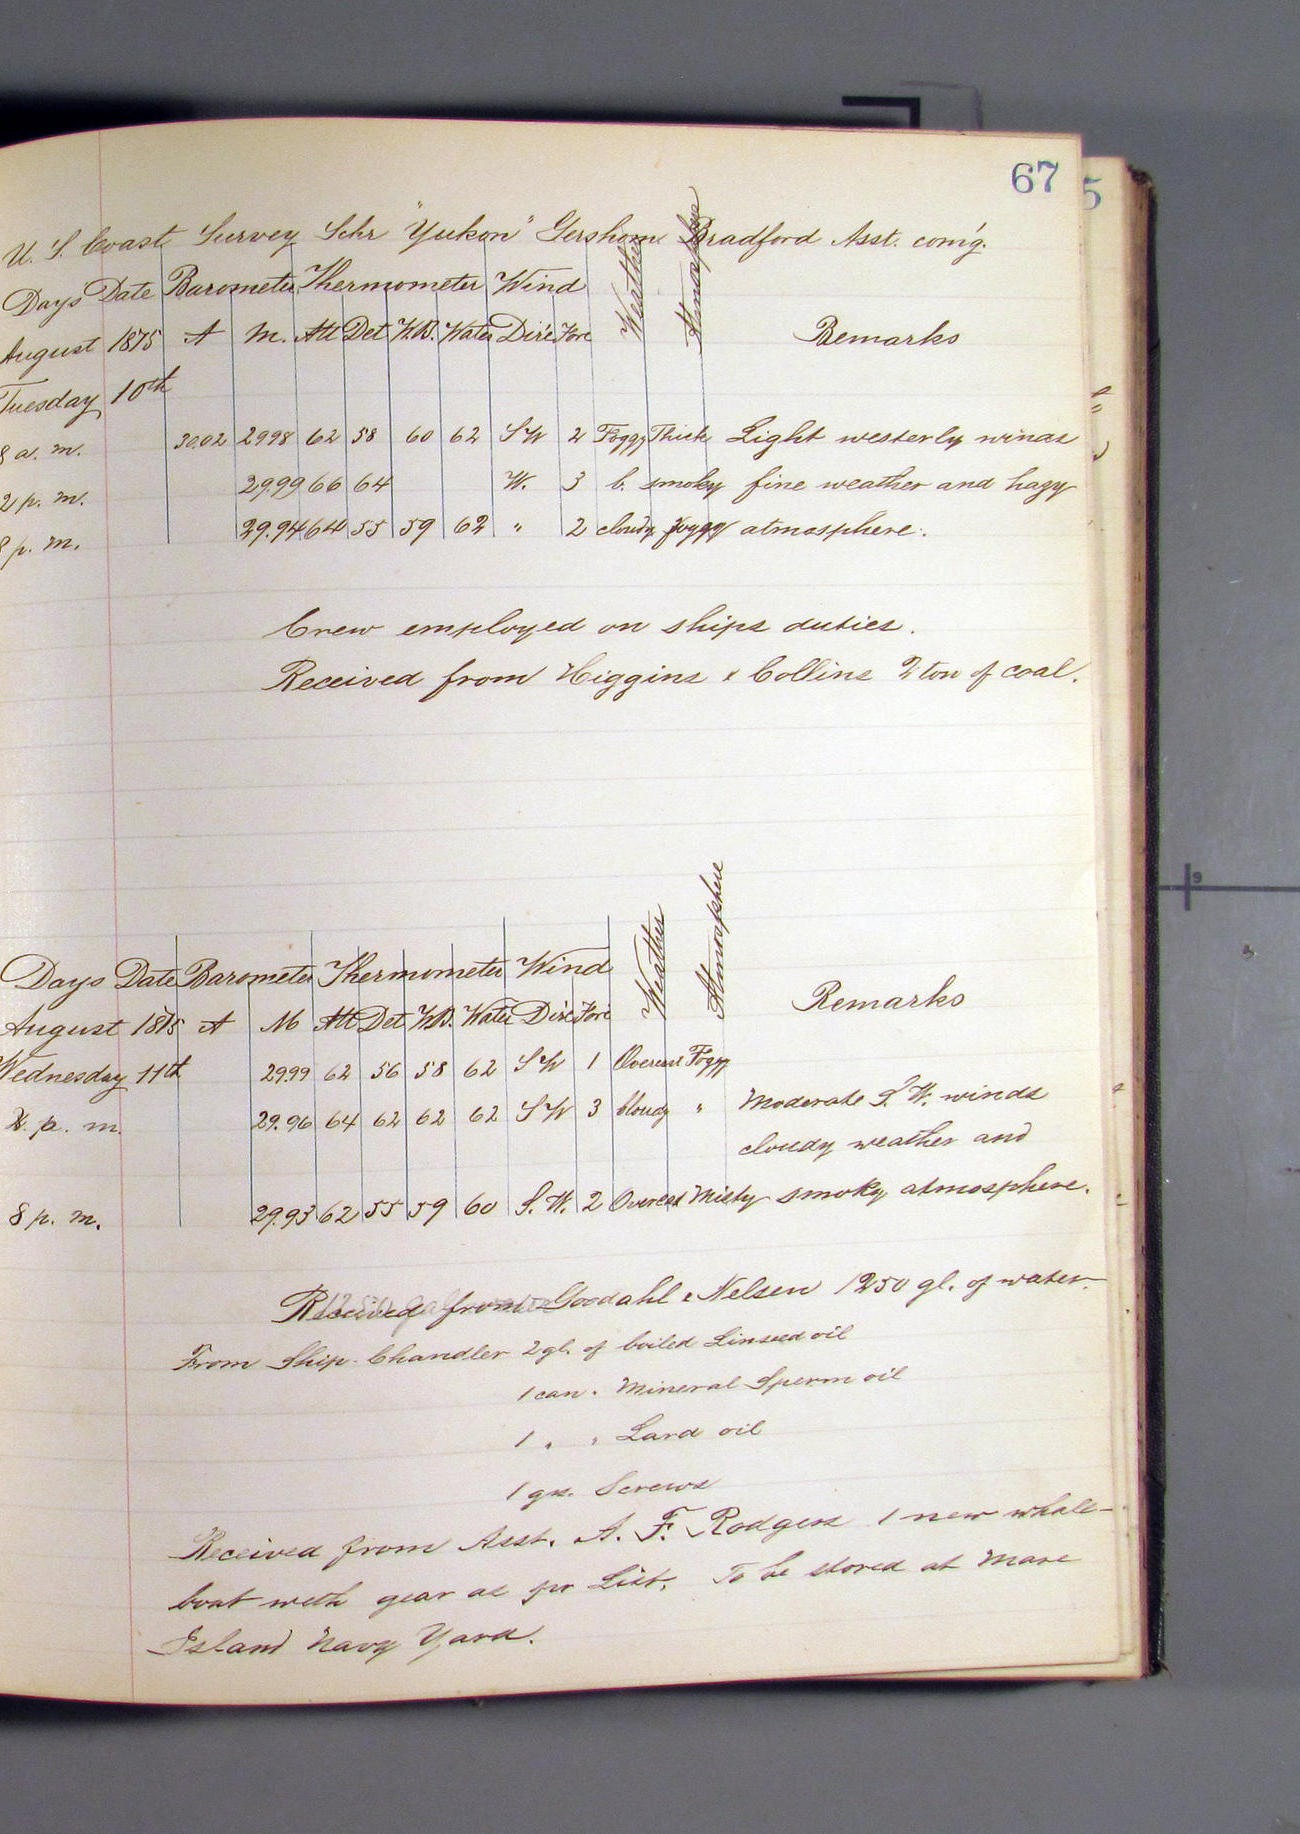 67
5
U. S. Coast Survey Schr "Yukon" Gershom Bradford Asst. com'g.
Days Date Barometer Thermometer Wind Weather Atmosphere
August 1875 A M. Att Det W.B. Water Dire Fore Remarks
Tuesday 10th
8 a. m. 30.02 29.98 62 58 60 62 SW 2 Foggy Thick Light westerly winds
2 p. m. 29.99 66 64 W. 3 b. smoky fine weather and hazy
8 p. m. 29.94 64 55 59 62 " 2 cloudy foggy atmosphere.
Crew employed on ships duties.
Received from Higgins & Collins ton of coal.
Days Date Barometer Thermometer Wind Weather Atmosphere
August 1875 A M Att Det W.B. Water Dire Fore Remarks
Wednesday 11th 29.99 62 56 58 62 SW 1 Overcast Foggy
p. m. 29.96 64 62 62 62 SW 3 Cloudy " Moderate S. W. winds
cloudy weather and
8 p. m. 29.93 62 55 59 60 S. W. 2 Overcast Misty smoky atmosphere.
Received from Goodahl & Nelsen 1250 gl. of water
From Ship Chandler 2 gl. of boiled Linseed oil
1 can " Mineral Sperm oil
1 " " Lard oil
1 gr. Screws
Received from Asst. A. F. Rodgers 1 new whale-
boat with gear as pr List. To be stored at Mare
Island Navy Yard.
9